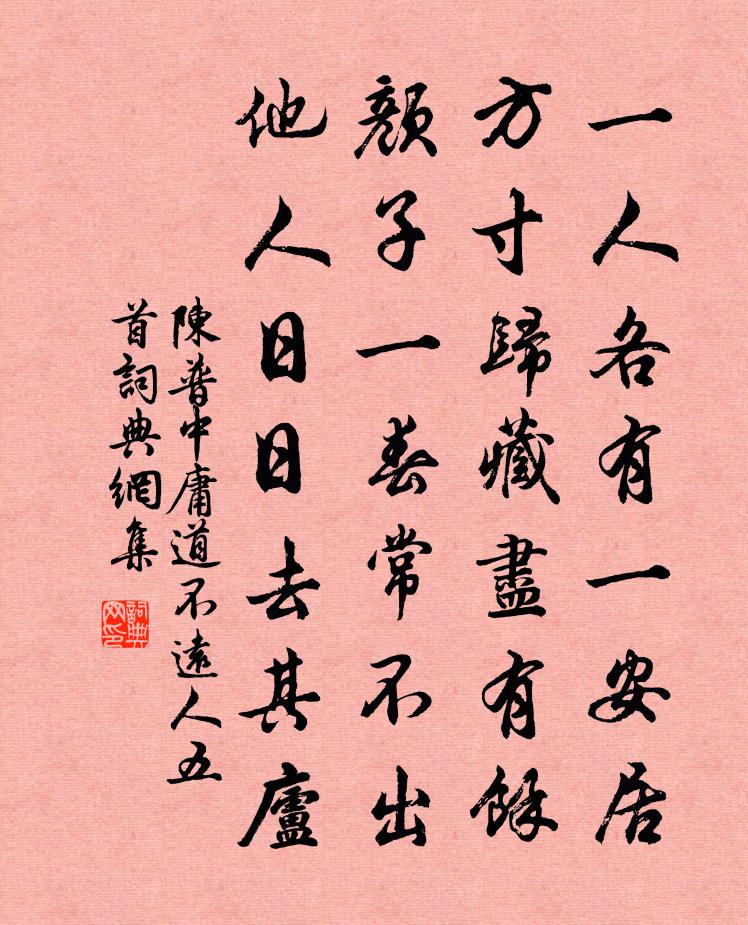 一人各有一安居
方寸歸藏盡有餘
顏子一春常不出
他人日日去其廬
陳普中庸道不遠人五
首詞典網集
詞典
网印